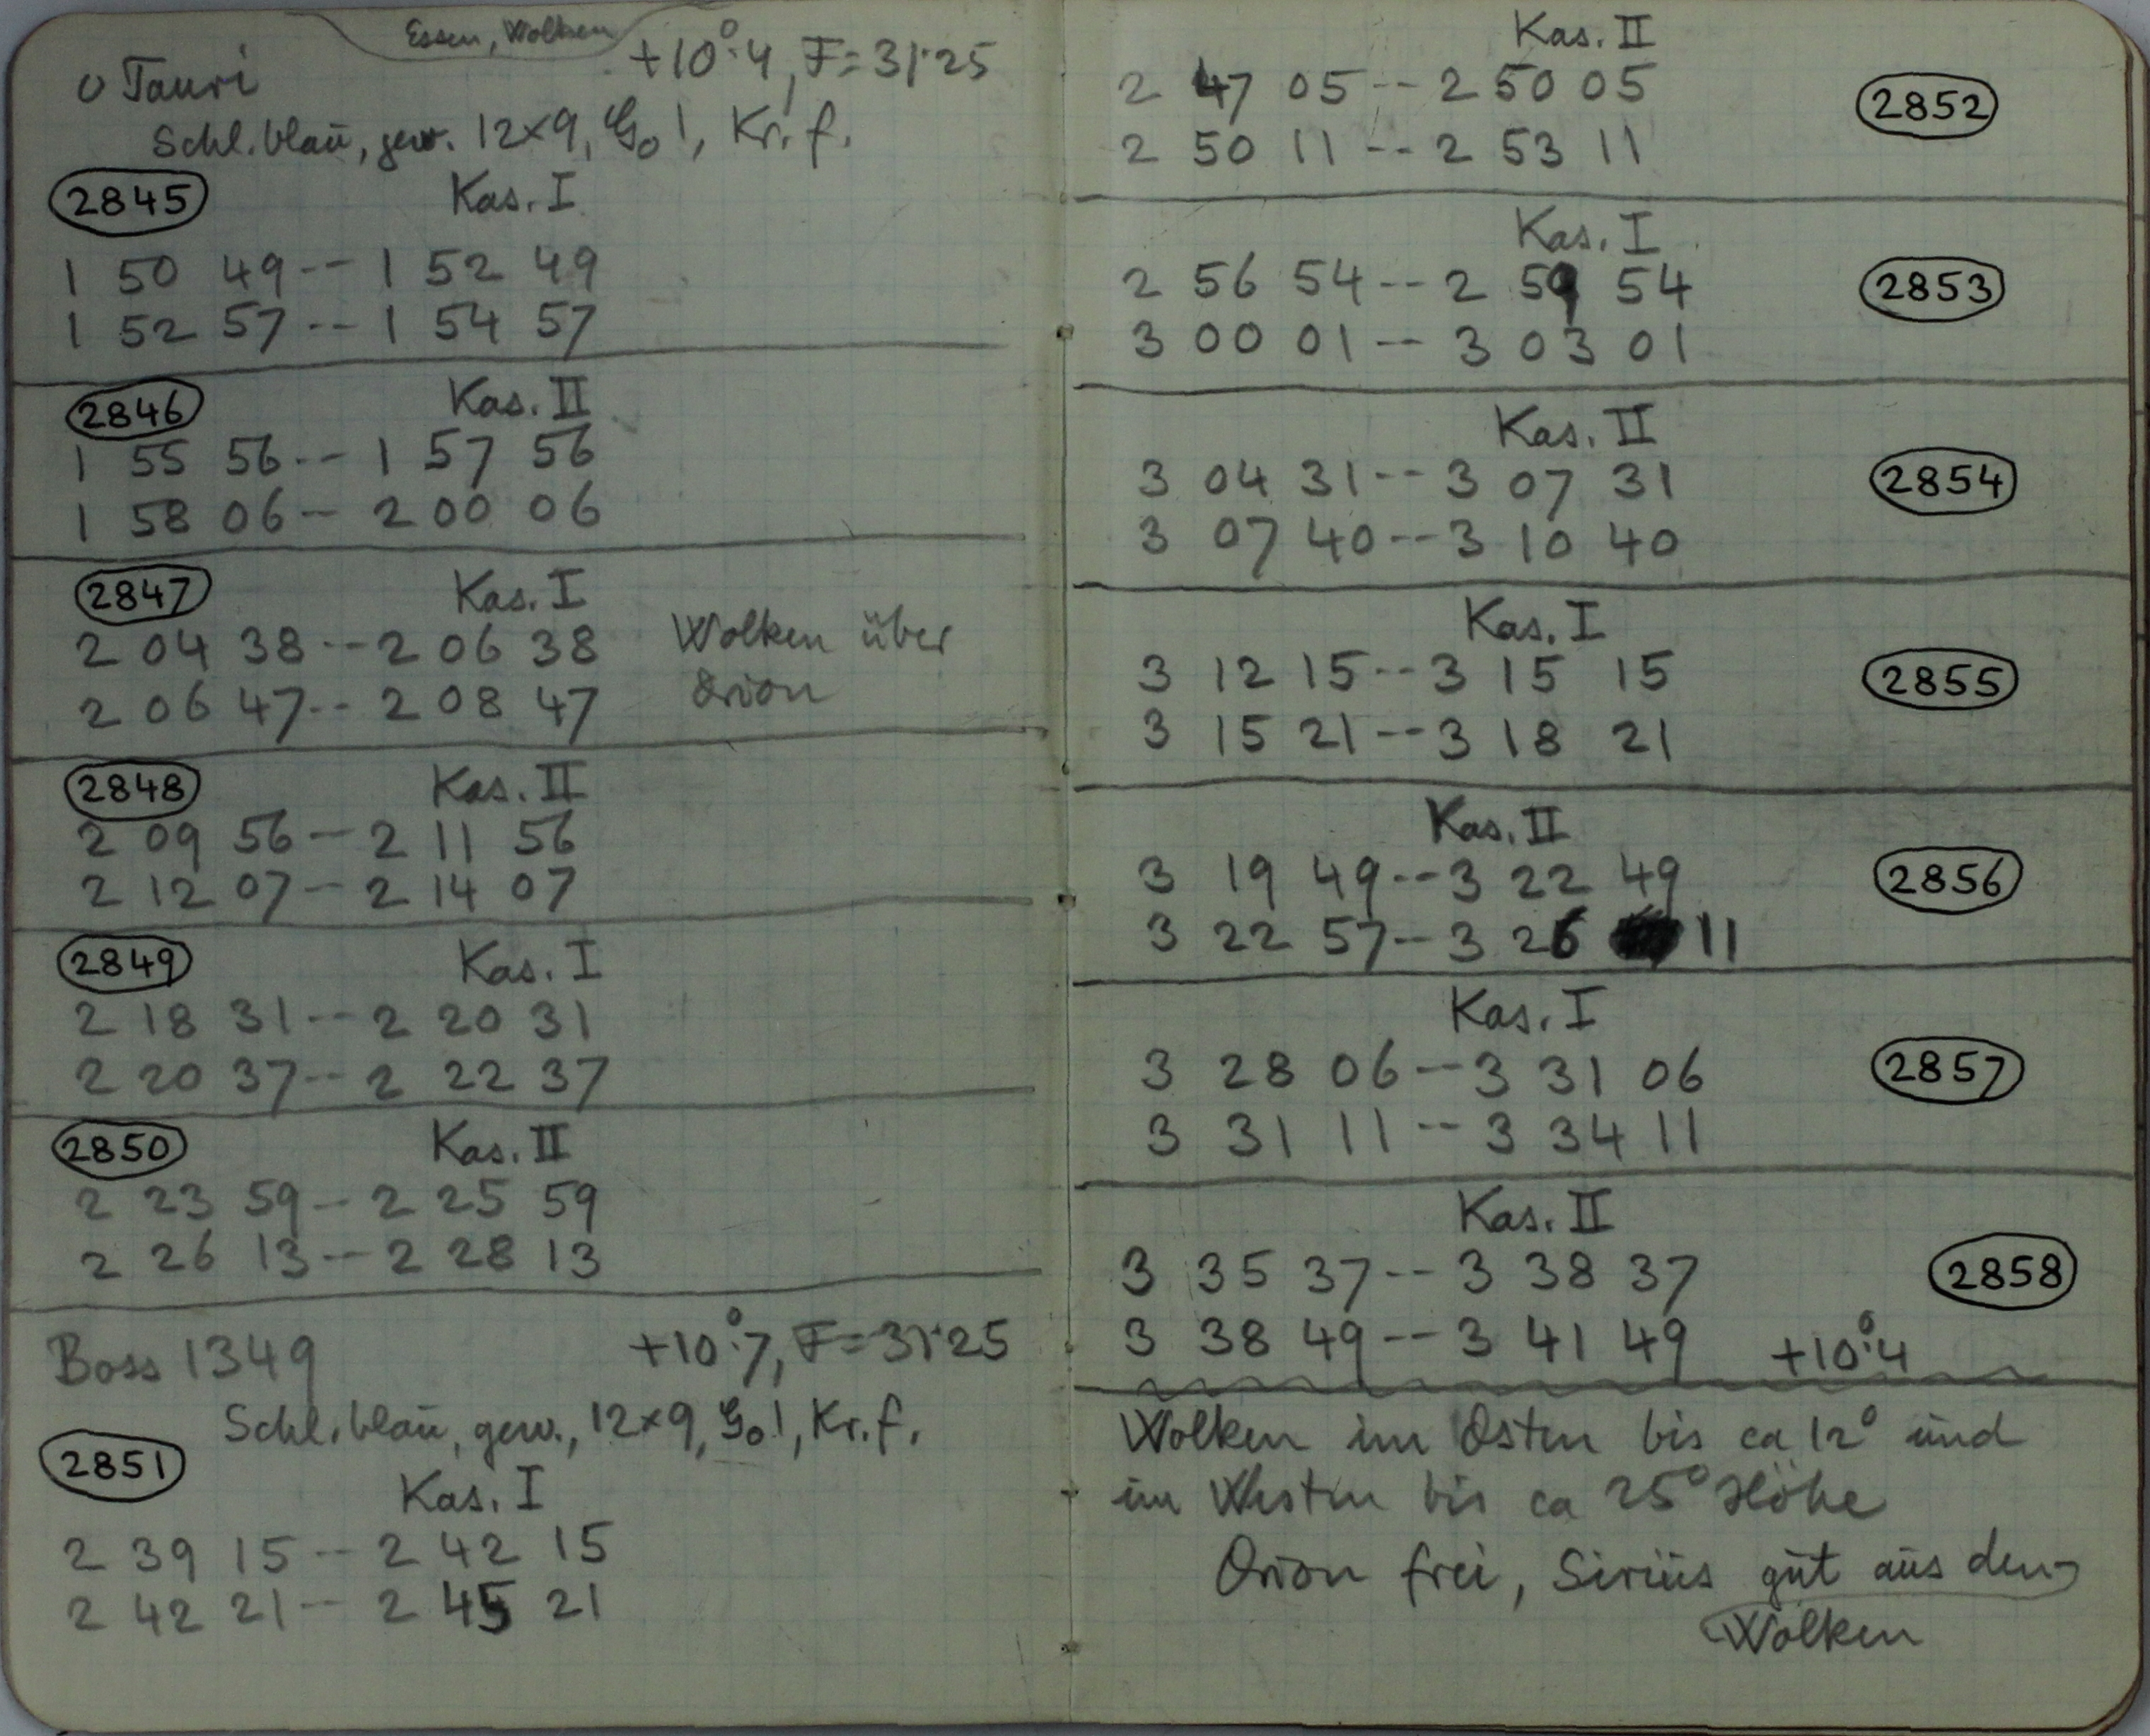 Essen, Wolken
o Tauri +10°.4, F=31.25
Schl. blau, gew. 12×9, Go!, Kr. f.
2845 Kas. I
1 50 49 -- 1 52 49
1 52 57 -- 1 54 57
2846 Kas. II
1 55 56 -- 1 57 56
1 58 06 -- 2 00 06
2847 Kas. I
2 04 38 -- 2 06 38 Wolken über
2 06 47 -- 2 08 47 Orion
2848 Kas. II
2 09 56 -- 2 11 56
2 12 07 -- 2 14 07
2849 Kas. I
2 18 31 -- 2 20 31
2 20 37 -- 2 22 37
2850 Kas. II
2 23 59 -- 2 25 59
2 26 13 -- 2 28 13
Boss 1349 +10°.7, F=31.25
Schl. blau, gew., 12×9, Go!, Kr. f.
2851
Kas. I
2 39 15 -- 2 42 15
2 42 21 -- 2 45 21
Kas. II
2 47 05 -- 2 50 05 2852
2 50 11 -- 2 53 11
Kas. I
2 56 54 -- 2 59 54 2853
3 00 01 -- 3 03 01
Kas. II
3 04 31 -- 3 07 31 2854
3 07 40 -- 3 10 40
Kas. I
3 12 15 -- 3 15 15 2855
3 15 21 -- 3 18 21
Kas. II
3 19 49 -- 3 22 49 2856
3 22 57 -- 3 26 11
Kas. I
3 28 06 -- 3 31 06 2857
3 31 11 -- 3 34 11
Kas. II
3 35 37 -- 3 38 37 2858
3 38 49 -- 3 41 49 +10°.4
Wolken im Osten bis ca 12° und
im Westen bis ca 25° Höhe
Orion frei, Sirius gut aus den
Wolken